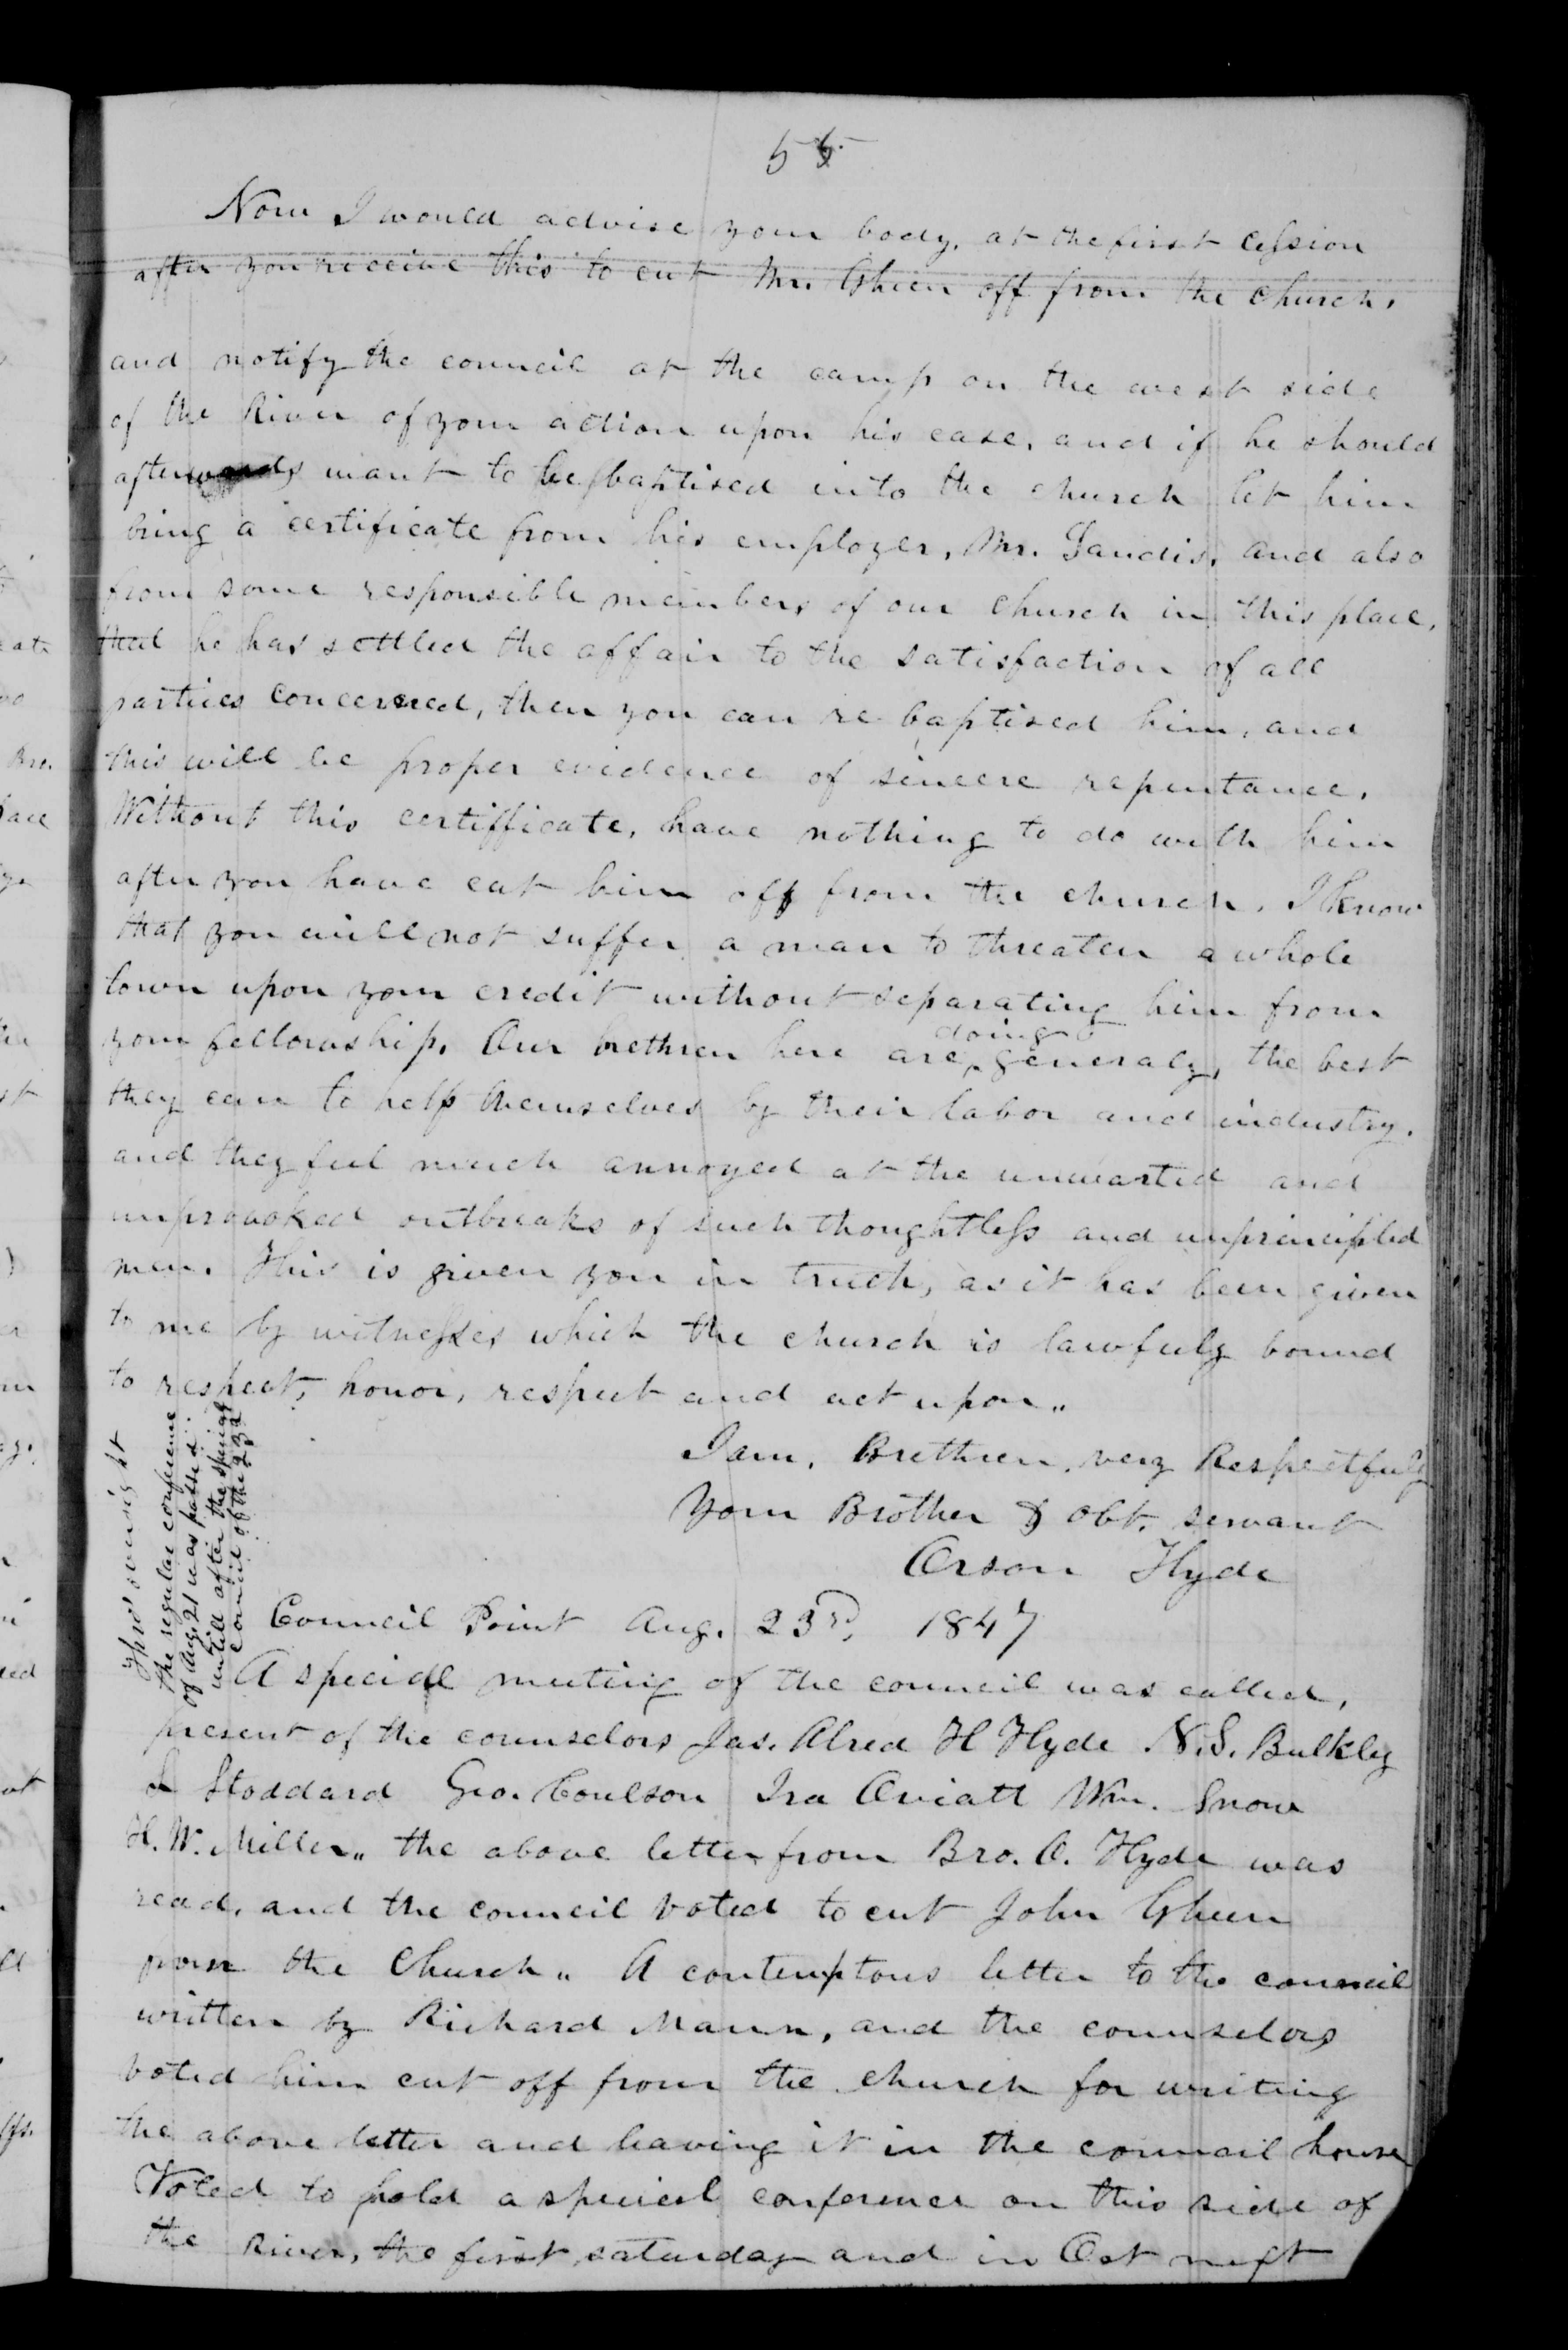 55
Now I would advise your body, at the first cession
after you receive this to cut Mr. Gheen off from the church,
and notify the council at the camp on the west side
of the River of your action upon his case, and if he should
afterwards want to be baptised into the church let him
bring a certificate from his employer, Mr. Landis, and also
from some responsible members of our church in this place,
that he has settled the affair to the satisfaction of all
parties concerned, then you can re baptised him, and
this will be proper evidence of sincere repentance.
Without this certifficate, have nothing to do with him
after you have cut him off from the church. I know
that you will not suffer a man to threaten a whole
town upon your credit without separating him from
your fellowship. Our brethren here are doing generaly, the best
they can to help themselves by their labor and industry.
and they feel much annoyed at the unwarted and
unprovoked outbreaks of such thoughtless and unprincipled
men. This is given you in truth, as it has been given
to me by witnesses which the church is lawfuly bound
to respect, honor, respect and act upon"
I am, Brethren, very Respectfuly
Your Brother & Obt. servant
Orson Hyde
the regular conference
of Aug. 21 was passed
untill after the special
council of the 23rd
Council Point Aug. 23rd, 1847
A special meeting of the council was called,
present of the counselors Jas. Alred H Hyde N.S. Bulkley
L Stoddard Geo. Coulson Ira Oviatt Wm. Snow
H. W. Miller" the above letter from Bro. O. Hyde was
read, and the council voted to cut John Gheen
from the Church" A contemptous letter to the council
written by Richard Mann, and the counselors
voted him cut off from the church for writing
the above letter and leaving it in the council house
Voted to hold a special conference on this side of
the River, the first saturday and in Oct next